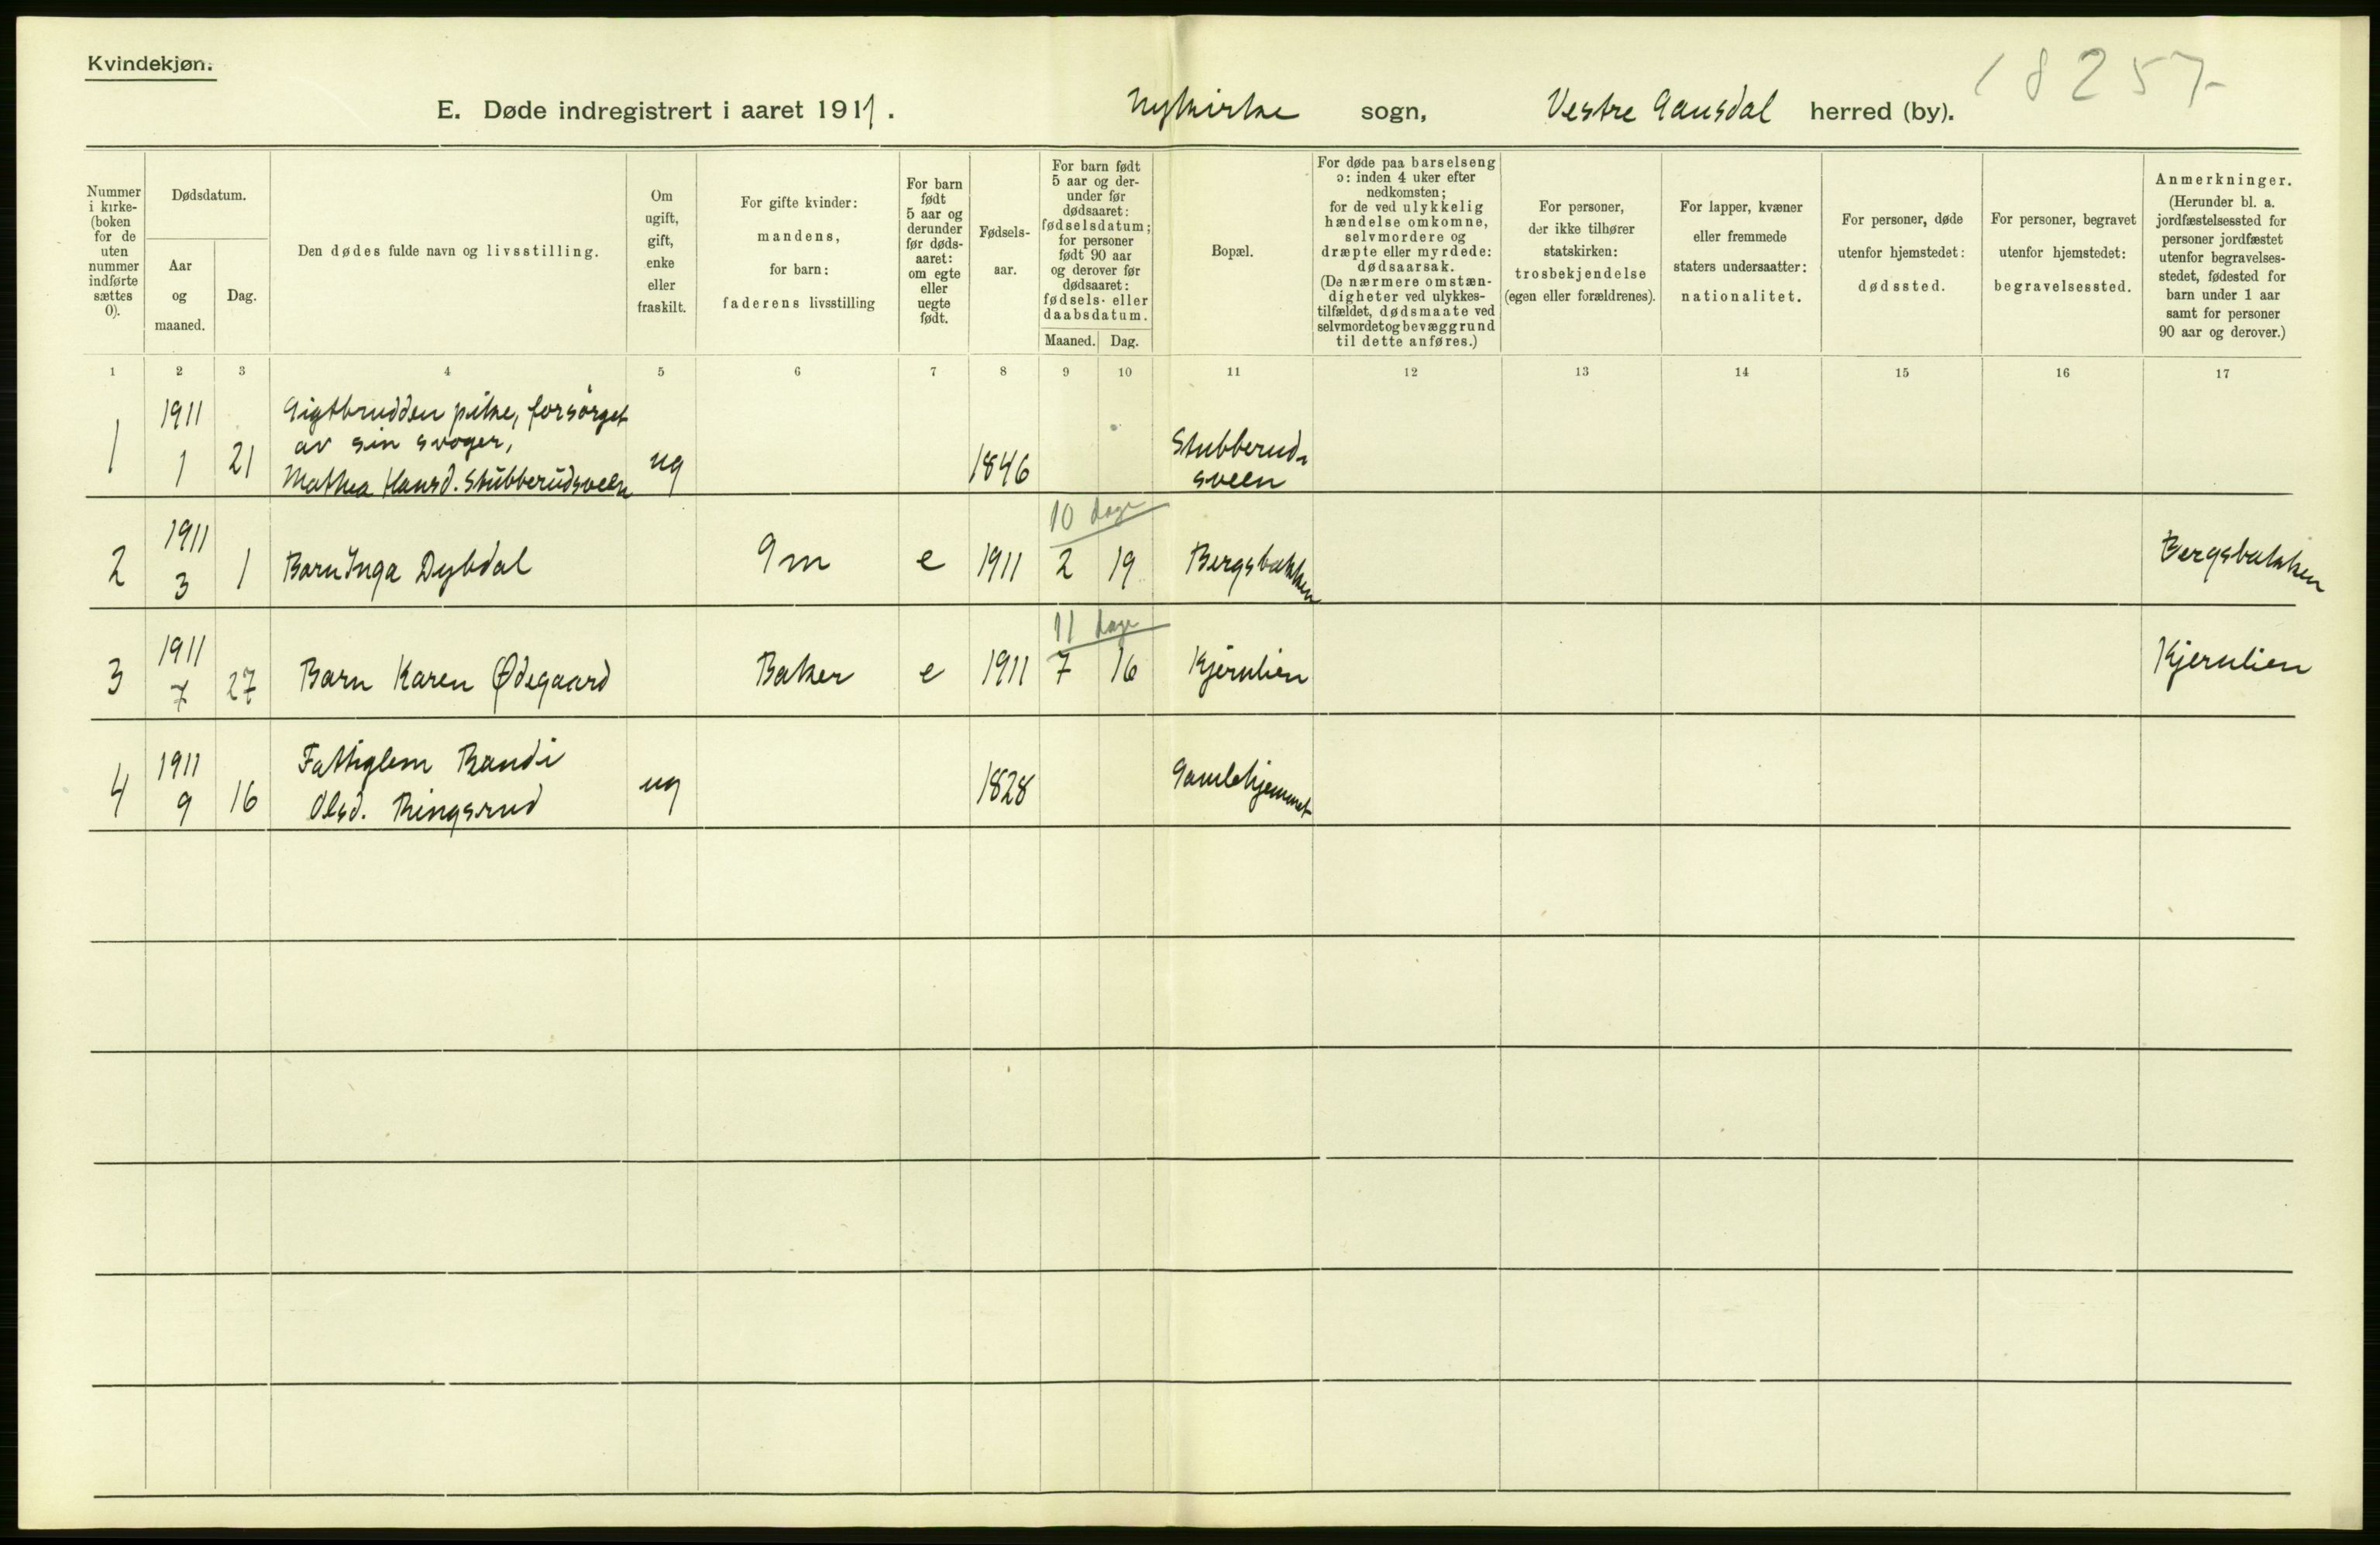 Kvindekjøn.
18257
E. Døde indregistrert i aaret 1911. Nykirke sogn, Vestre Gausdal herred (by).
Nummer i kirke-(boken for de uten nummer indførte sættes 0).
Dødsdatum.
Aar og maaned.
Dag.
Den dødes fulde navn og livsstilling.
Om ugift, gift, enke eller fraskilt.
For gifte kvinder: mandens, for barn: faderens livsstilling
For barn født 5 aar og derunder før døds-aaret: om egte eller uegte født.
Fødsels-aar.
For barn født 5 aar og der-under før dødsaaret: fødselsdatum; for personer født 90 aar og derover før dødsaaret: fødsels- eller daabsdatum.
Maaned. Dag.
Bopæl.
For døde paa barselseng ɔ: inden 4 uker efter nedkomsten; for de ved ulykkelig hændelse omkomne, selvmordere og dræpte eller myrdede: dødsaarsak. (De nærmere omstæn-digheter ved ulykkes-tilfældet, dødsmaate ved selvmordet og bevæggrund til dette anføres.)
For personer, der ikke tilhører statskirken: trosbekjendelse (egen eller forældrenes).
For lapper, kvæner eller fremmede staters undersaatter: nationalitet.
For personer, døde utenfor hjemstedet: dødssted.
For personer, begravet utenfor hjemstedet: begravelsessted.
Anmerkninger. (Herunder bl. a. jordfæstelsessted for personer jordfæstet utenfor begravelses-stedet, fødested for barn under 1 aar samt for personer 90 aar og derover.)
1 2 3 4 5 6 7 8 9 10 11 12 13 14 15 16 17
1 1911 1 21 Gigtbrudden pike, forsørget
av sin svoger,
Mathea Hansd. Stubberudsveen ug 1846 Stubberud-
sveen
10 dage
2 1911 3 1 Barn Inga Dybdal Gm e 1911 2 19 Bergsbakken Bergsbakken
11 dage
3 1911 7 27 Barn Karen Ødegaard Baker e 1911 7 16 Kjernlien Kjernlien
4 1911 9 16 Fattiglem Randi
Olsd. Ringsrud ug 1828 Gamlehjemmet